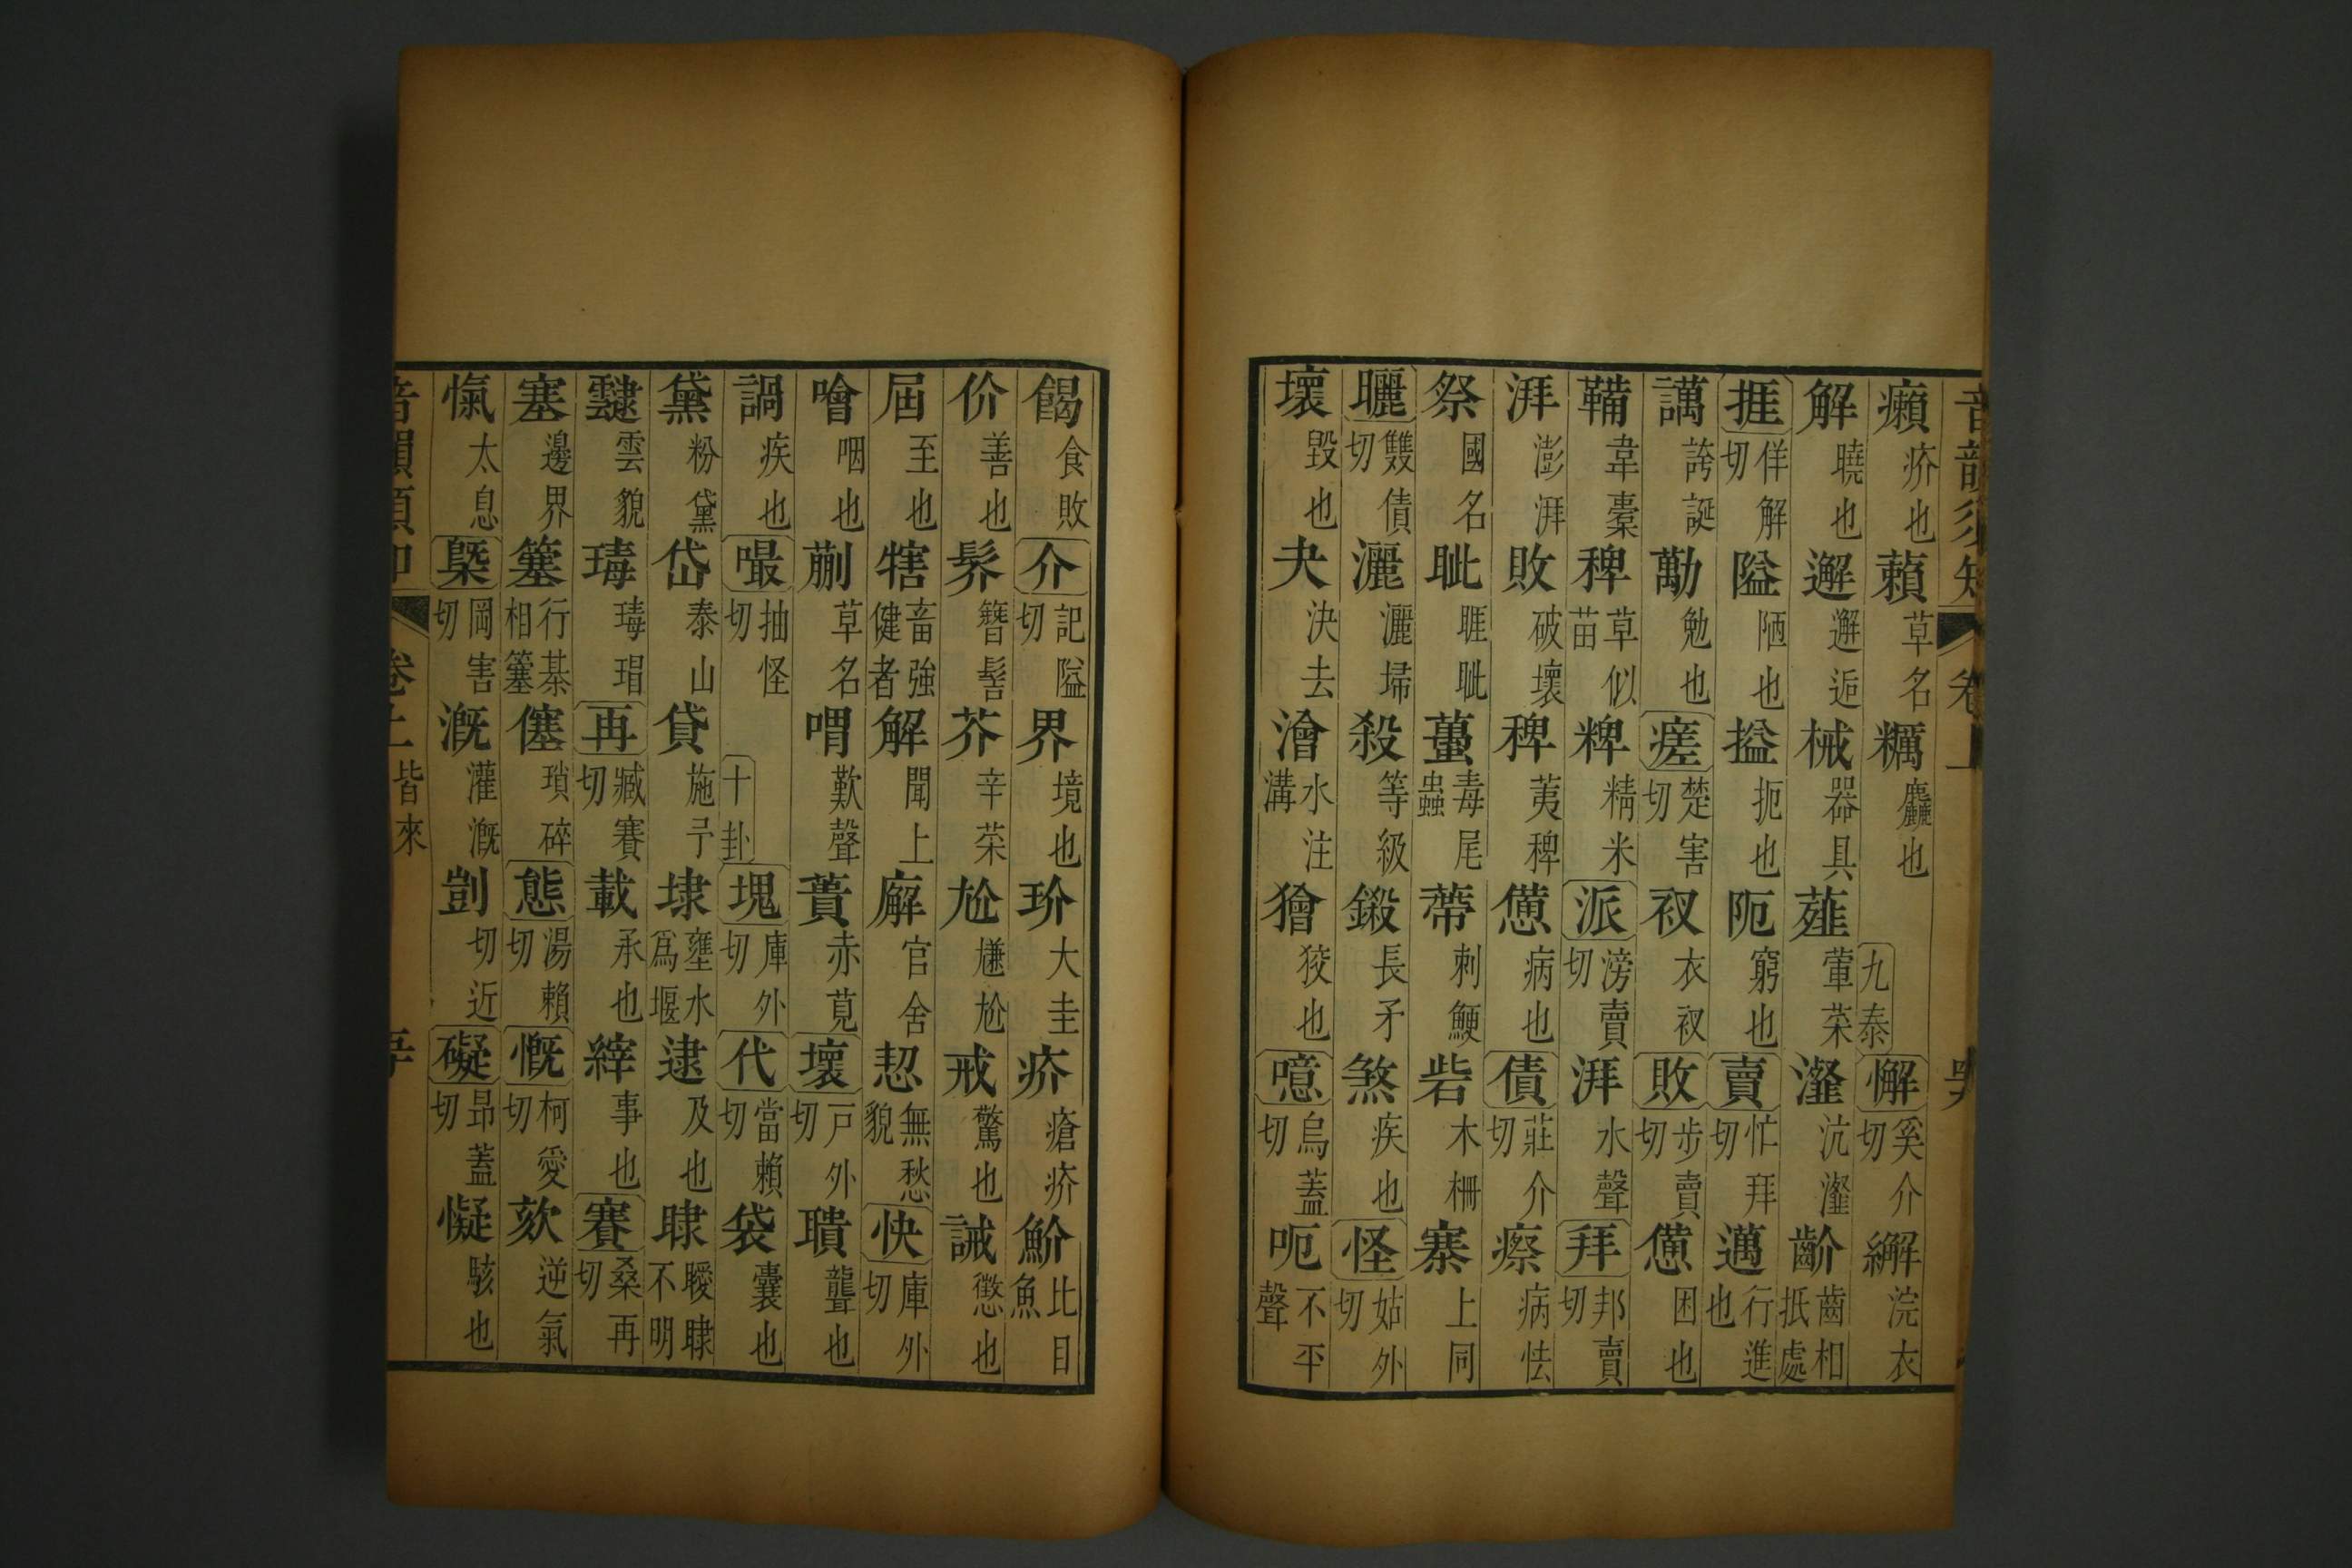 音韻須知 卷上
癩疥也藾草名糲麤也九泰懈奚介切繲浣衣
解曉也邂邂逅械器具薤葷菜瀣沆瀣齘齒相抵處
捱佯解切隘陋也搤扼也阨窮也賣忙拜切邁行進也
譪誇誕勱勉也瘥楚害切衩衣衩敗步賣切憊困也
鞴韋橐稗草似苗粺精米派滂賣切湃水聲拜邦賣切
湃澎湃敗破壞稗荑稗憊病也債莊介切瘵病怯
祭國名眦睚眦蠆毒尾蟲蔕刺鯁砦木柵寨上同
曬雙債切灑灑埽殺等級鎩長矛煞疾也怪姑外切
壞毀也夬決去澮水注溝獪狡也噫烏蓋切呃不平聲
餲食敗介記隘切界境也玠大圭疥瘡疥魪比目魚
价善也髤簪髻芥辛菜尬尲尬戒驚也誡懲也
屆至也犗畜強健者解聞上廨官舍恝無愁貌快庫外切
噲咽也蒯草名喟歎聲蕢赤莧壞戶外切聵聾也
譌疾也嘬抽怪切十卦塊庫外切代當賴切袋囊也
黛粉黛岱泰山貸施予埭壅水爲堰逮及也䏲靉䏲不明
靆雲貌瑇瑇瑁再臧賽切載承也縡事也賽桑再切
塞邊界簺行棊相簺僿瑣碎態湯賴切慨柯愛切欬逆氣
愾太息槩岡害切漑灌漑剴切近礙昂蓋切懝駭也
卷上 皆來